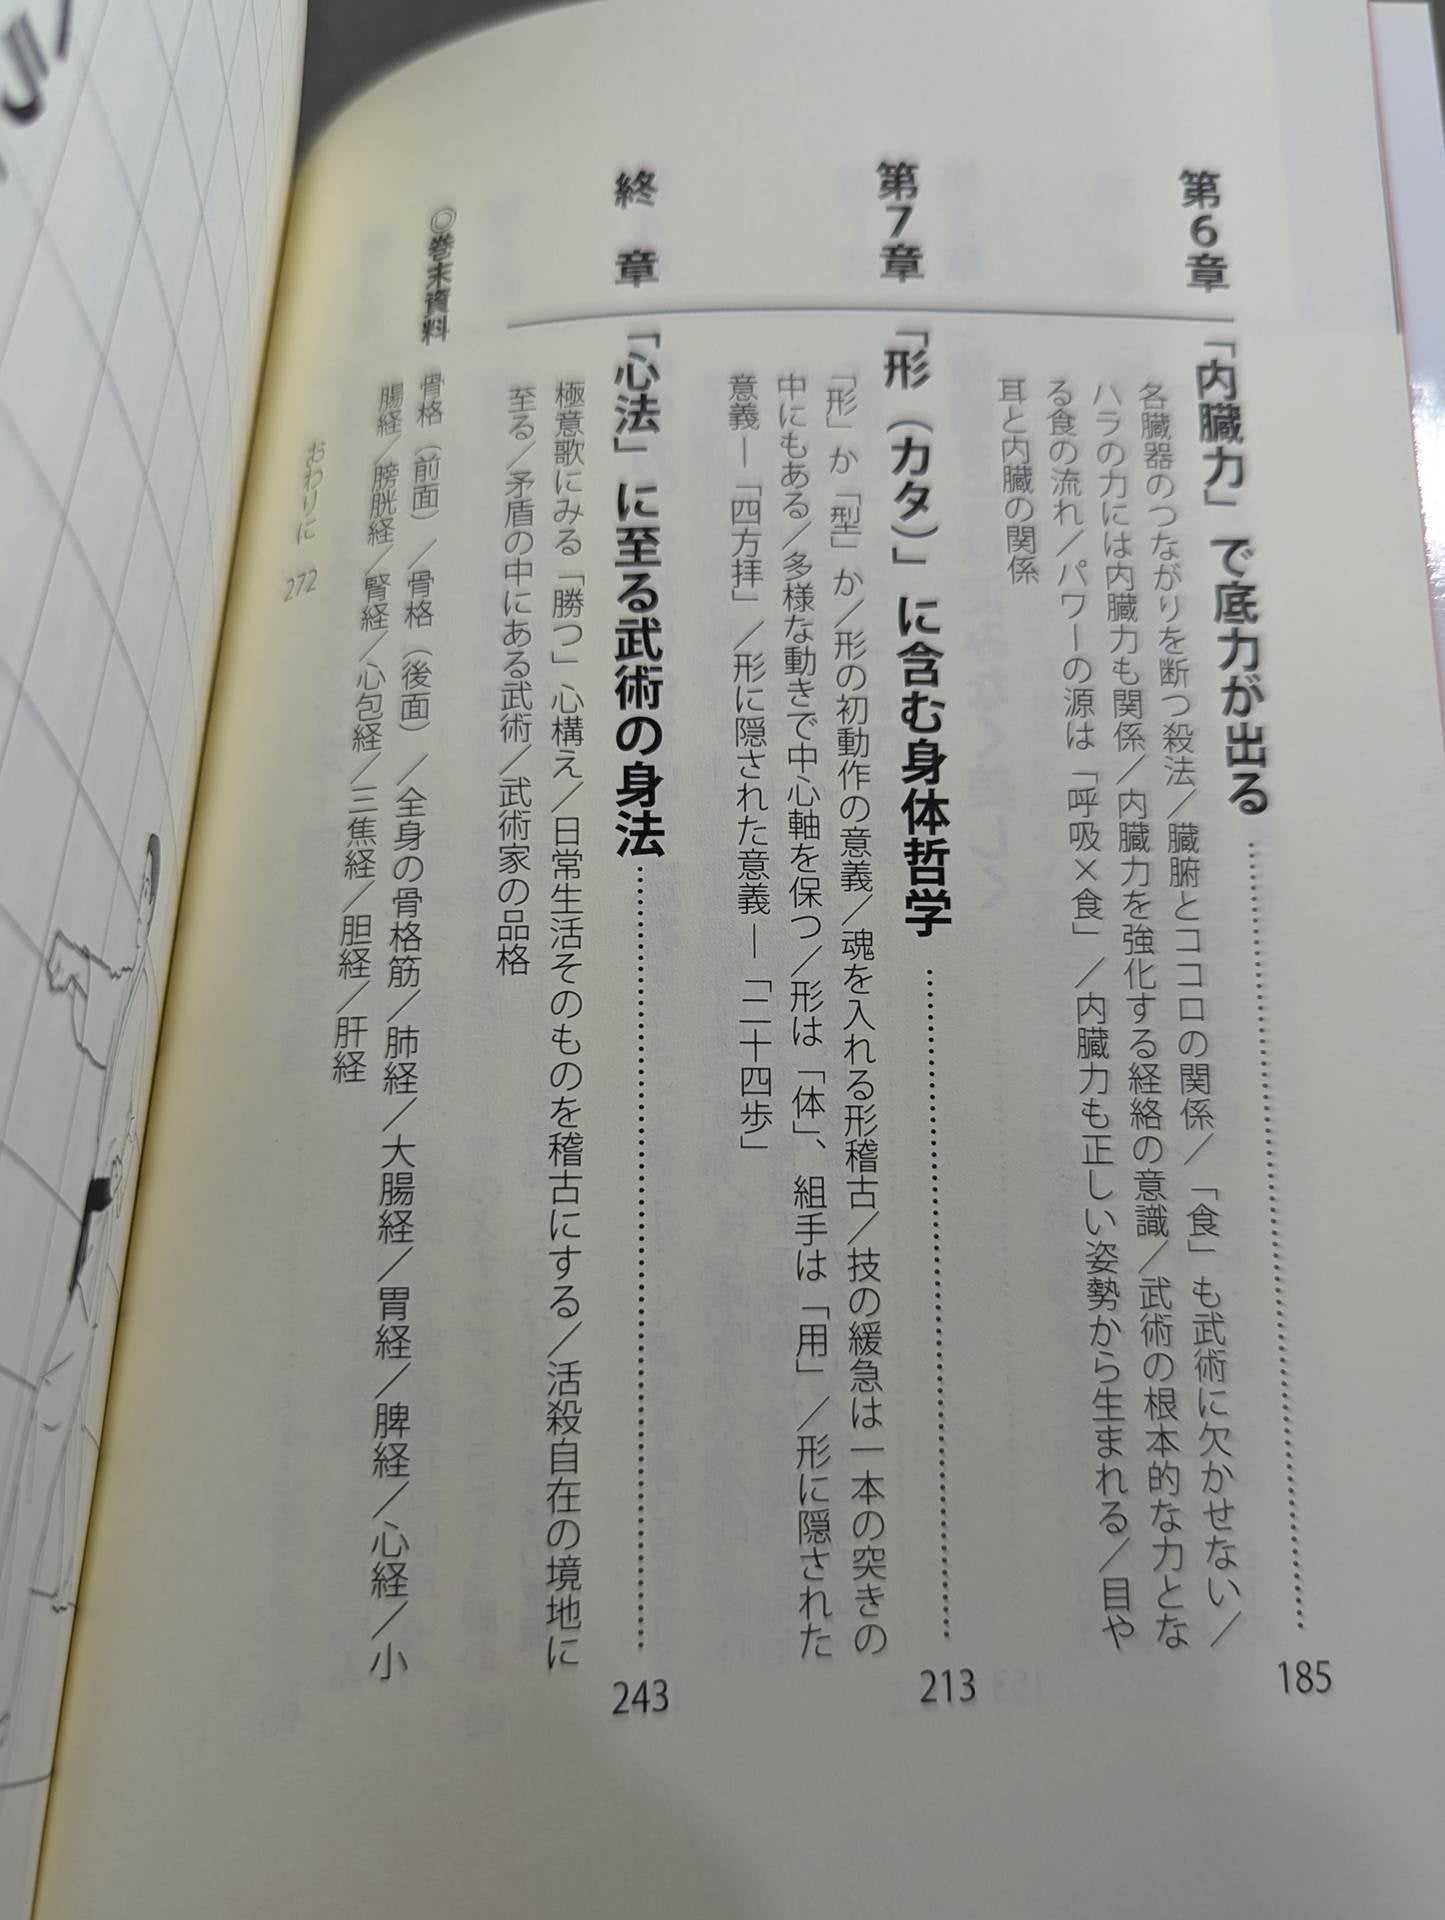 第6章 「内臓力」で底力が出る 185
各臓器のつながりを断つ殺法／臓腑とココロの関係／「食」も武術に欠かせない／
ハラの力には内臓力も関係／内臓力を強化する経絡の意識／武術の根本的な力とな
る食の流れ／パワーの源は「呼吸×食」／内臓力も正しい姿勢から生まれる／目や
耳と内臓の関係
第7章 「形（カタ）」に含む身体哲学 213
「形」か「型」か／形の初動作の意義／魂を入れる形稽古／技の緩急は一本の突きの
中にもある／多様な動きで中心軸を保つ／形は「体」、組手は「用」／形に隠された
意義―「四方拝」／形に隠された意義―「二十四歩」
終 章 「心法」に至る武術の身法 243
極意歌にみる「勝つ」心構え／日常生活そのものを稽古にする／活殺自在の境地に
至る／矛盾の中にある武術／武術家の品格
◎巻末資料 骨格（前面）／骨格（後面）／全身の骨格筋／肺経／大腸経／胃経／脾経／心経／小
腸経／膀胱経／腎経／心包経／三焦経／胆経／肝経
おわりに 272